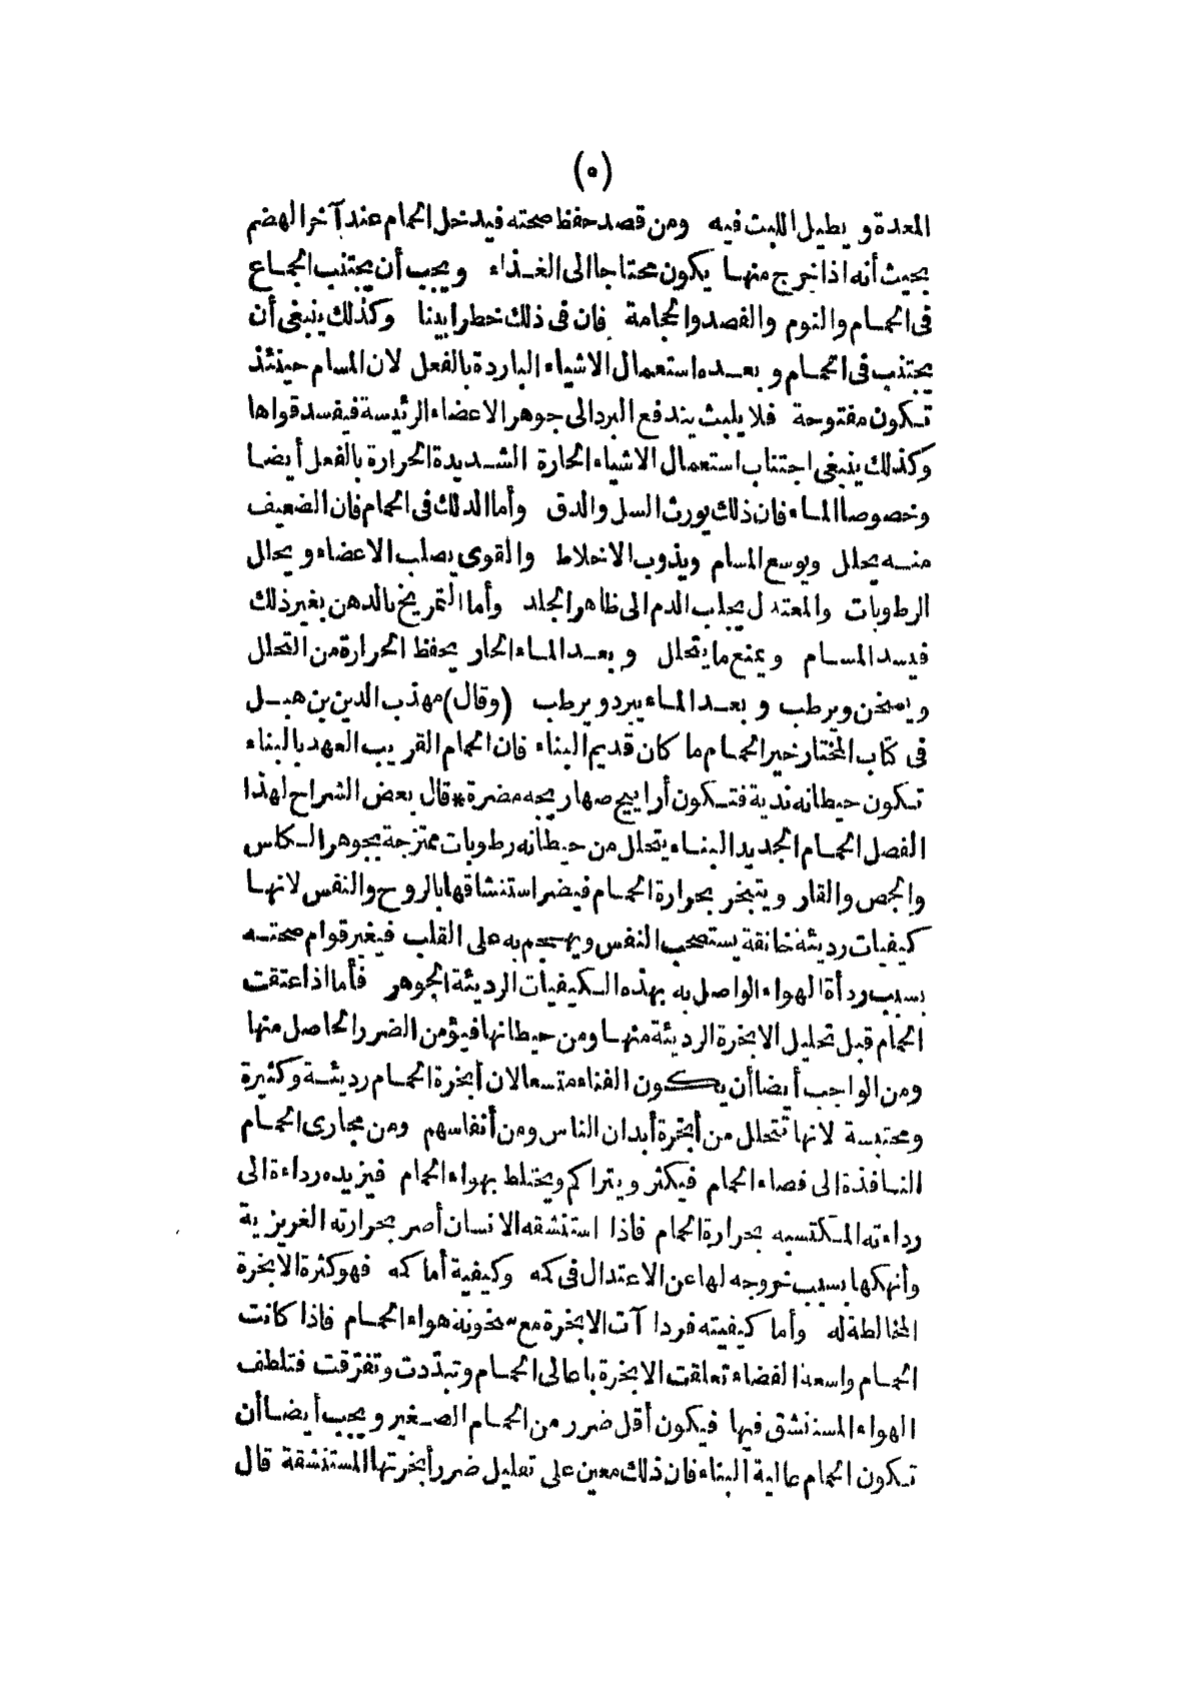 (٥)
المعدة ويطيل اللبث فيه ومن قصد حفظ صحته فيدخل الحمام عند آخر الهضم
بحيث أنه اذا خرج منها يكون محتاجا الى الغذاء ويجب أن يجتنب الجماع
فى الحمام والنوم والفصد والحجامة فان فى ذلك خطرا بينا وكذلك ينبغى أن
يجتنب فى الحمام وبعده استعمال الاشياء الباردة بالفعل لان المسام حينئذ
تكون مفتوحة فلا يلبث يندفع البرد الى جوهر الاعضاء الرئيسة فيفسد قواها
وكذلك ينبغى اجتناب استعمال الاشياء الحارة الشديدة الحرارة بالفعل أيضا
وخصوصا الماء فان ذلك يورث السل والدق وأما الدلك فى الحمام فان الضعيف
منه يحلل ويوسع المسام ويذوب الاخلاط والقوى يصلب الاعضاء ويحلل
الرطوبات والمعتدل يجلب الدم الى ظاهر الجلد وأما التمريخ بالدهن بغير ذلك
فيسد المسام ويمنع ما يتحلل وبعد الماء الحار يحفظ الحرارة من التحلل
ويسخن ويرطب وبعد الماء يبرد ويرطب (وقال) مهذب الدين بن هبل
فى كتاب المختار خير الحمام ما كان قديم البناء فان الحمام القريب العهد بالبناء
تكون حيطانه ندية فتكون أراييح صهاريجه مضرة * قال بعض الشراح لهذا
الفصل الحمام الجديد البناء يتحلل من حيطانه رطوبات ممتزجة بجوهر الكلس
والجص والقار ويتبخر بحرارة الحمام فيضر استنشاقها بالروح والنفس لانها
كيفيات رديئة خانقة يستصحب النفس ويهجم به على القلب فيغير قوام صحته
بسبب ردأة الهواء الواصل به بهذه الكيفيات الرديئة الجوهر فأما اذا عتقت
الحمام قبل تحليل الابخرة الرديئة منها ومن حيطانها فيؤمن الضرر الحاصل منها
ومن الواجب أيضا أن يكون الفناء متسعا لان أبخرة الحمام رديئة وكثيرة
ومحتبسة لانها تتحلل من أبخرة أبدان الناس ومن أنفاسهم ومن مجارى الحمام
النافذة الى فضاء الحمام فيكثر ويتراكم ويختلط بهواء الحمام فيزيده رداءة الى
رداءته المكتسبه بحرارة الحمام فاذا استنشقه الانسان أضر بحرارته الغريزية
وأنهكها بسبب خروجه لها عن الاعتدال فى كه وكيفية أما كه فهو كثرة الابخرة
المخالطة له وأما كيفيته فردا آت الابخرة مع سخونة هواء الحمام فاذا كانت
الحمام واسعة الفضاء تعلقت الابخرة باعالى الحمام وتبدّدت وتفرّقت فتلطف
الهواء المستنشق فيها فيكون أقل ضرر من الحمام الصغير ويجب أيضا أن
تكون الحمام عالية البناء فان ذلك معين على تقليل ضرر أبخرتها المستنشقة قال